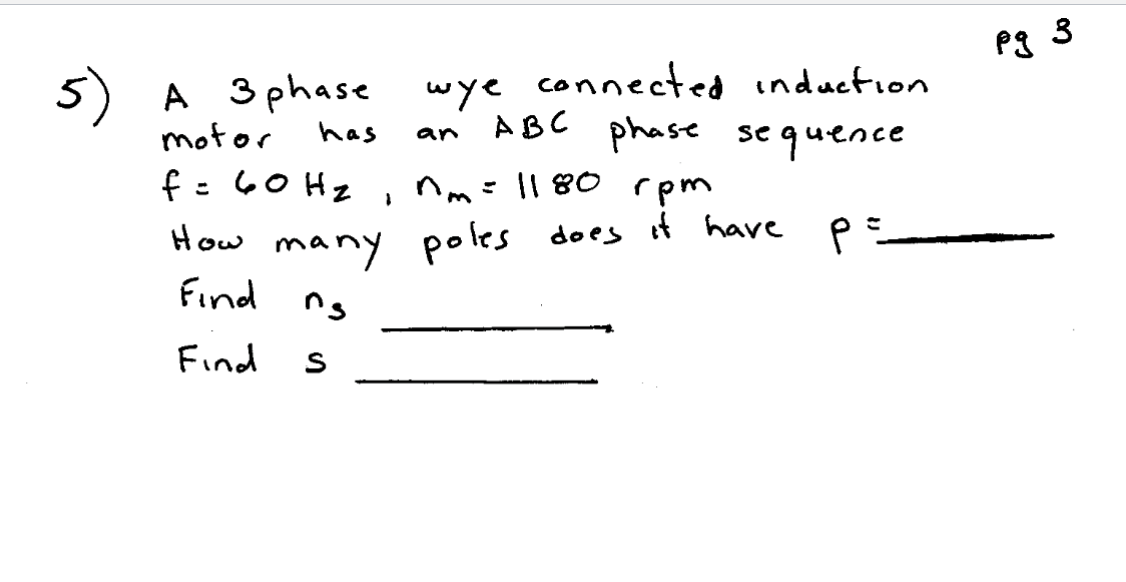 pg 3
5) A 3 phase wye connected induction
motor has an ABC phase sequence
f = 60 Hz , nm = 1180 rpm
How many poles does it have p =
Find ns
Find s